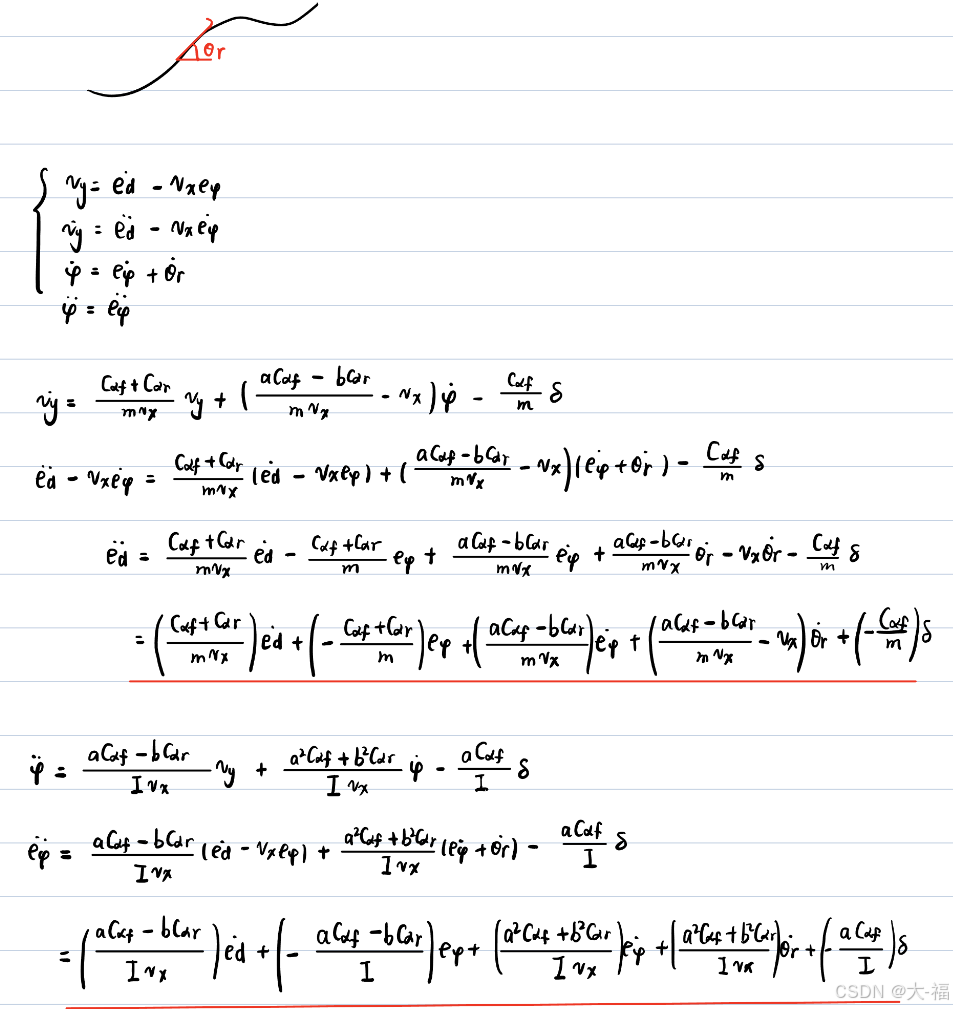 θr
vy = ėd - vx eφ
v̇y = ëd - vx ėφ
φ̇ = ėφ + θ̇r
φ̈ = ëφ
v̇y = (Cαf + Cαr)/(m vx) vy + ((aCαf - bCαr)/(m vx) - vx) φ̇ - Cαf/m δ
ëd - vx ėφ = (Cαf + Cαr)/(m vx) (ėd - vx eφ) + ((aCαf - bCαr)/(m vx) - vx)(ėφ + θ̇r) - Cαf/m δ
ëd = (Cαf + Cαr)/(m vx) ėd - (Cαf + Cαr)/m eφ + (aCαf - bCαr)/(m vx) ėφ + (aCαf - bCαr)/(m vx) θ̇r - vx θ̇r - Cαf/m δ
= ((Cαf + Cαr)/(m vx)) ėd + (-(Cαf + Cαr)/m) eφ + ((aCαf - bCαr)/(m vx)) ėφ + ((aCαf - bCαr)/(m vx) - vx) θ̇r + (-Cαf/m) δ
φ̈ = (aCαf - bCαr)/(I vx) vy + (a²Cαf + b²Cαr)/(I vx) φ̇ - aCαf/I δ
ëφ = (aCαf - bCαr)/(I vx) (ėd - vx eφ) + (a²Cαf + b²Cαr)/(I vx) (ėφ + θ̇r) - aCαf/I δ
= ((aCαf - bCαr)/(I vx)) ėd + (-(aCαf - bCαr)/I) eφ + ((a²Cαf + b²Cαr)/(I vx)) ėφ + ((a²Cαf + b²Cαr)/(I vx)) θ̇r + (-aCαf/I) δ
CSDN @大-福